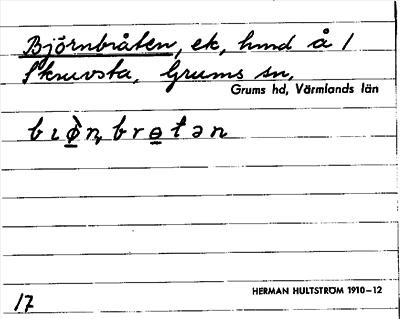 Björnbråten, ek, hmd å 1
Skruvsta, Grums sn,
Grums hd, Värmlands län
bɩø̀n,brɵtən
HERMAN HULTSTRÖM 1910–12
17